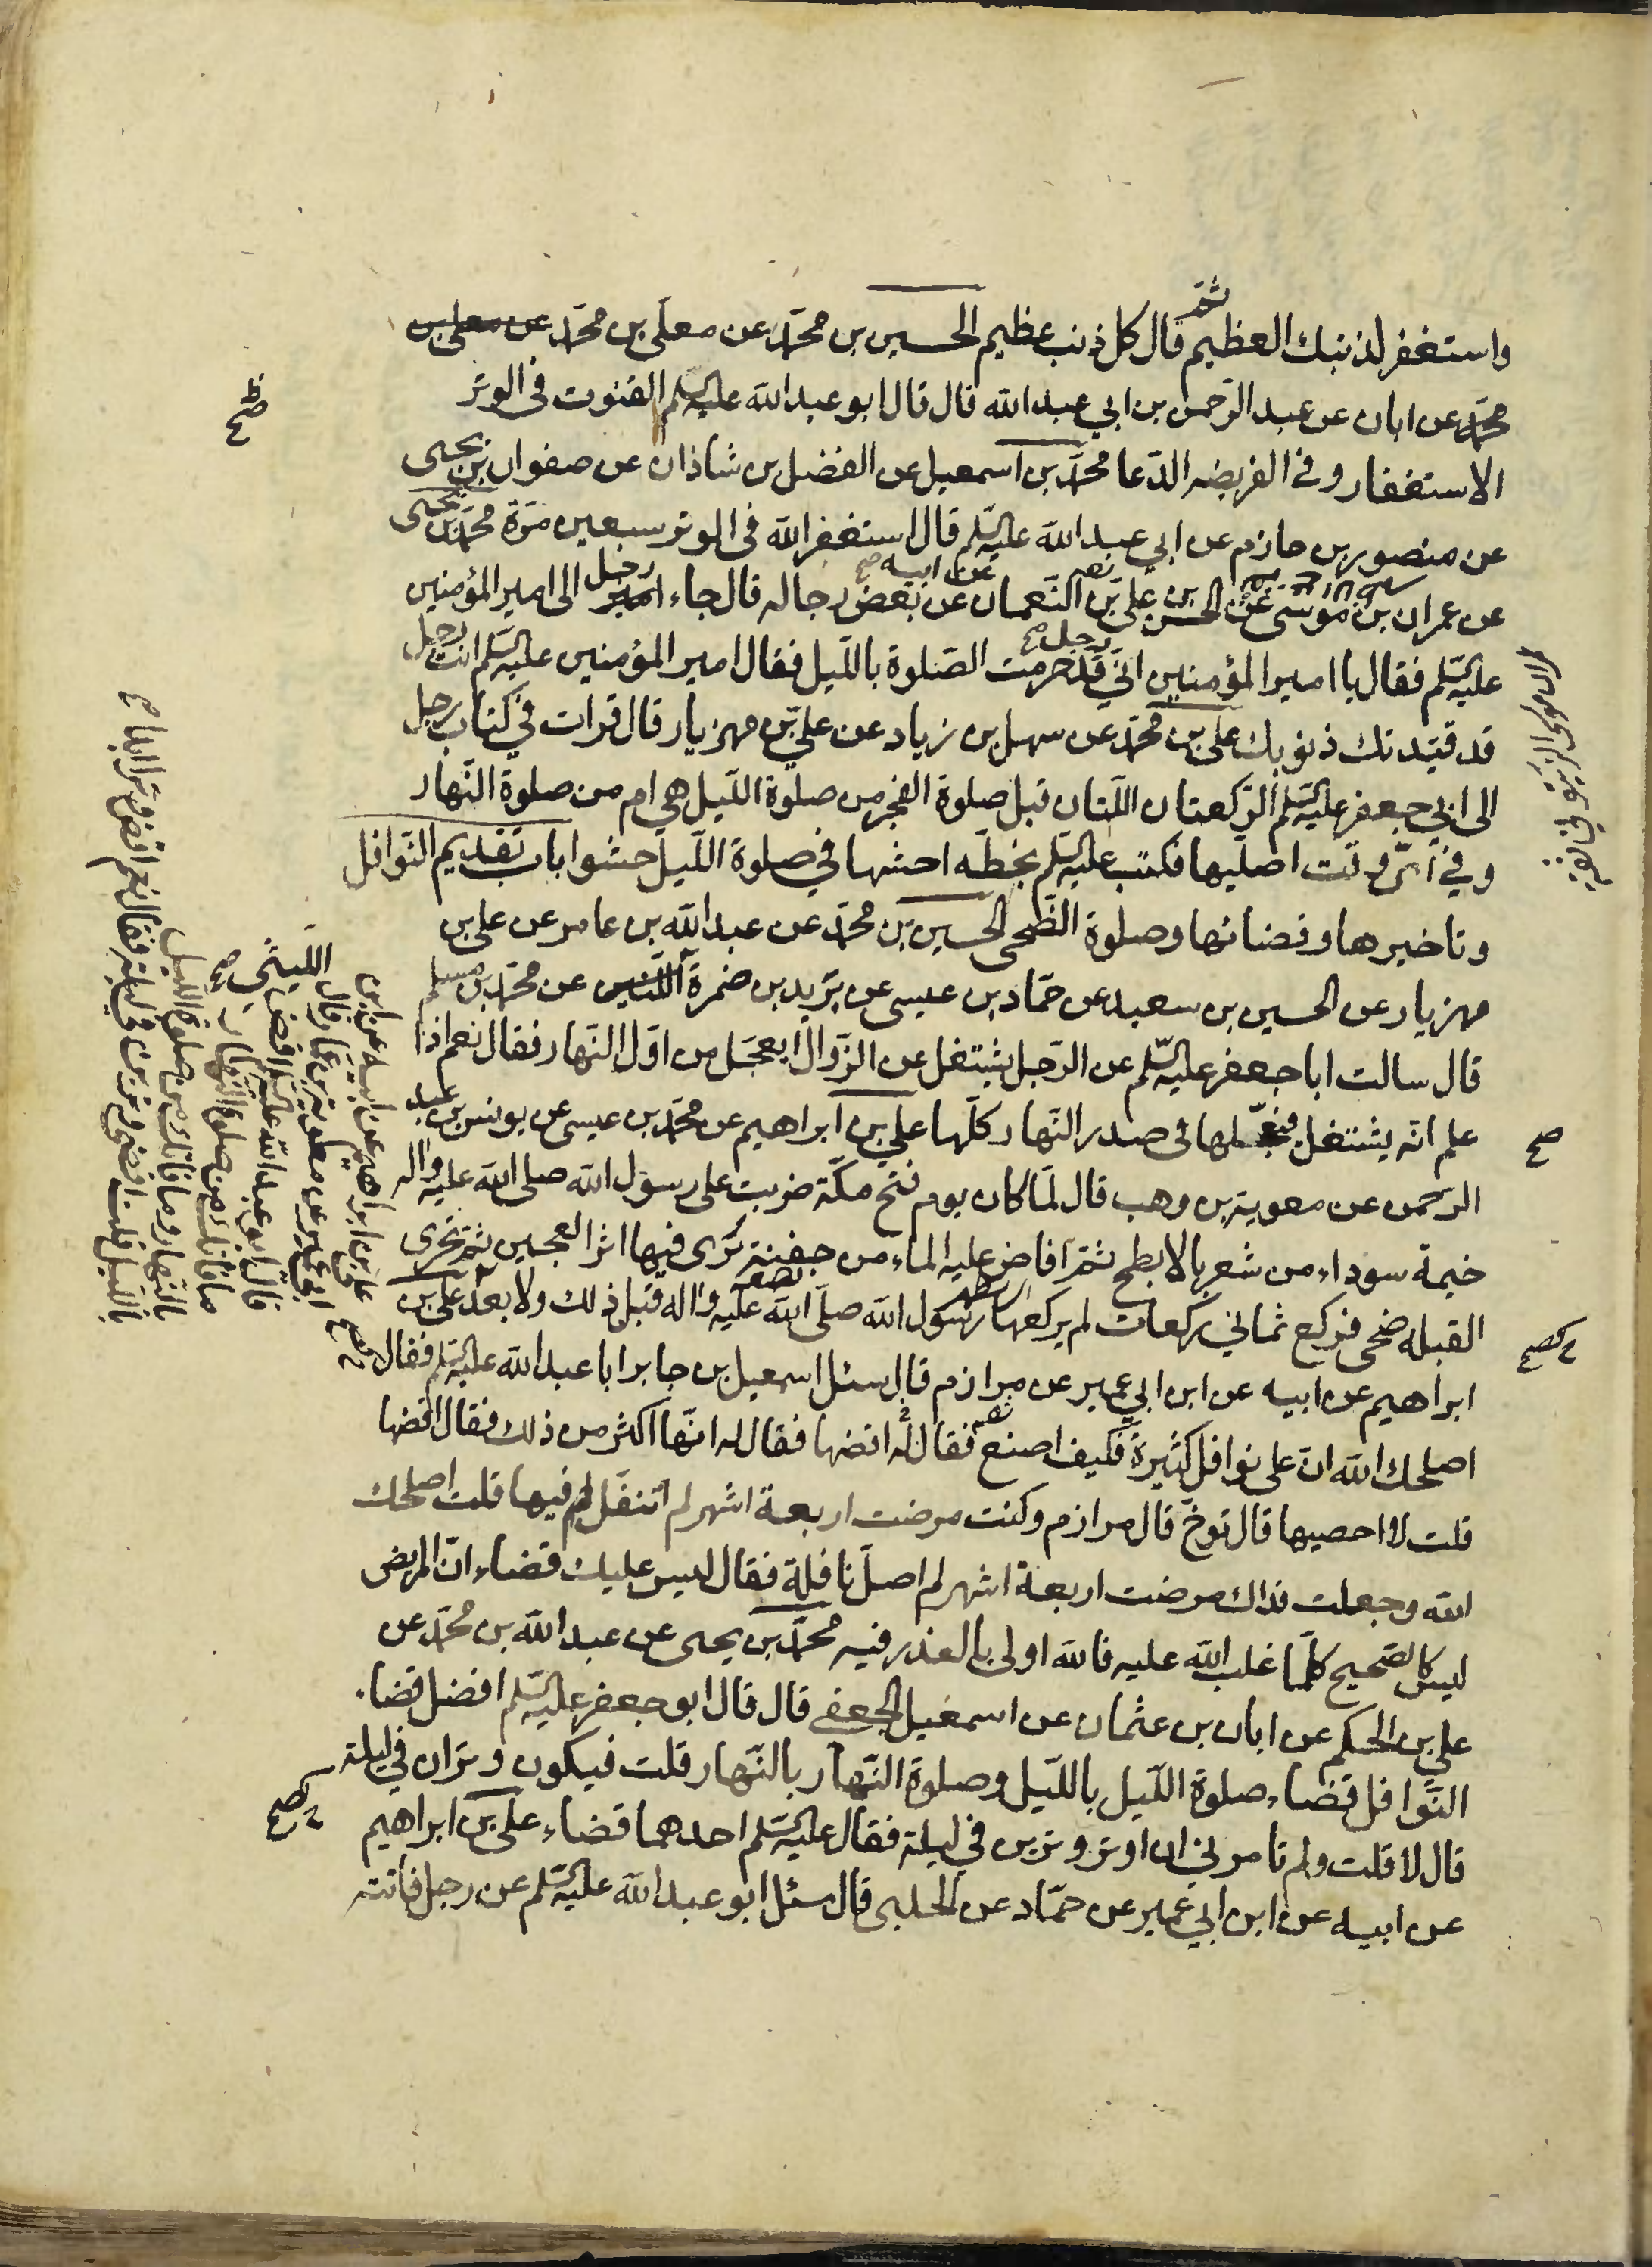 واستغفر لذنبك العظيم ثم قال كل ذنب عظيم الحسين بن محمّد عن معلّى بن محمّد عن معلى بن
محمّد عن ابان عن عبد الرّحمن بن ابي عبد الله قال قال ابو عبد الله عليه السلم القنوت في الوتر
الاستغفار وفي الفريضه الدّعا محمّد بن اسمعيل عن الفضل بن شاذان عن صفوان بن يحيى
عن منصور بن حازم عن ابي عبد الله عليه السّلم قال استغفر الله في الوتر سبعين مرّة محمّد بن يحيى
عن عمران بن موسى عن الحسن بن علي بن النّعمان عن ابيه عن بعض رجاله قال جاء رجل الى امير المؤمنين
عليه السّلم فقال يا امير المؤمنين انّي قد حرمت الصّلوة باللّيل فقال امير المؤمنين عليه السّلم انت رجل
قد قيّدتك ذنوبك علي بن محمّد عن سهل بن زياد عن عليّ بن مهزيار قال قرات في كتاب رجل
الى ابي جعفر عليه السّلم الرّكعتان اللّتان قبل صلوة الفجر من صلوة اللّيل هي ام من صلوة النّهار
وفي ايّ وقت اصلّيها فكتب عليه السّلم بخطّه احشها في صلوة اللّيل حشوا باب تقديم النّوافل
وتاخيرها وقضائها وصلوة الضّحى الحسين بن محمّد عن عبد الله بن عامر عن علي بن
مهزيار عن الحسين بن سعيد عن حمّاد بن عيسى عن بريد بن ضمرة الليثي عن محمّد بن مسلم
قال سالت ابا جعفر عليه السّلم عن الرّجل يشتغل عن الزّوال ايعجّل من اوّل النّهار فقال نعم اذا
علم انّه يشتغل فيعجّلها في صدر النّهار كلّها علي بن ابراهيم عن محمّد بن عيسى عن يونس بن عبد
الرّحمن عن معوية بن وهب قال لمّا كان يوم فتح مكّة ضربت على رسول الله صلى الله عليه واله
خيمة سوداء من شعر بالابطح ثمّ افاض عليه الماء من جفنة يرى فيها اثر العجين ثمّ تحرى
القبله ضحى فركع ثماني ركعات لم يركعها رسول الله صلّى الله عليه واله قبل ذلك ولا بعد علي بن
ابراهيم عن ابيه عن ابن ابي عمير عن مرازم قال سئل اسمعيل بن جابر ابا عبد الله عليه السّلم فقال
اصلحك الله انّ علي نوافل كثيرة فكيف اصنع فقال له اقضها فقال له انّها اكثر من ذلك فقال اقضها
قلت لا احصيها قال توخّ قال مرازم وكنت مرضت اربعة اشهر لم اتنفّل فيها قلت اصلحك
الله وجعلت فداك مرضت اربعة اشهر لم اصلّ نافلة فقال ليس عليك قضاء انّ المريض
ليس كالصّحيح كلّما غلب الله عليه فالله اولى بالعذر فيه محمّد بن يحيى عن عبد الله بن محمّد عن
علي بن الحكم عن ابان بن عثمان عن اسمعيل الجعفي قال قال ابو جعفر عليه السّلم افضل قضاء
النّوافل قضاء صلوة اللّيل باللّيل وصلوة النّهار بالنّهار قلت فيكون وتران في ليلة
قال لا قلت ولم تامرني ان اوتر وترين في ليلة فقال عليه السّلم احدهما قضاء علي بن ابراهيم
عن ابيه عن ابن ابي عمير عن حمّاد عن الحلبي قال سئل ابو عبد الله عليه السّلم عن رجل فاتته
الليثي صح
علي بن ابراهيم عن ابيه عن ابن
ابي عمير عن معوية بن عمار قال
قال ابو عبد الله عليه السّلم اقض
ما فاتك من صلوة النّهار
بالنّهار وما فاتك من صلوة اللّيل
باللّيل قلت اقضي وترين في ليلة فقال نعم اقض وترا ابدا